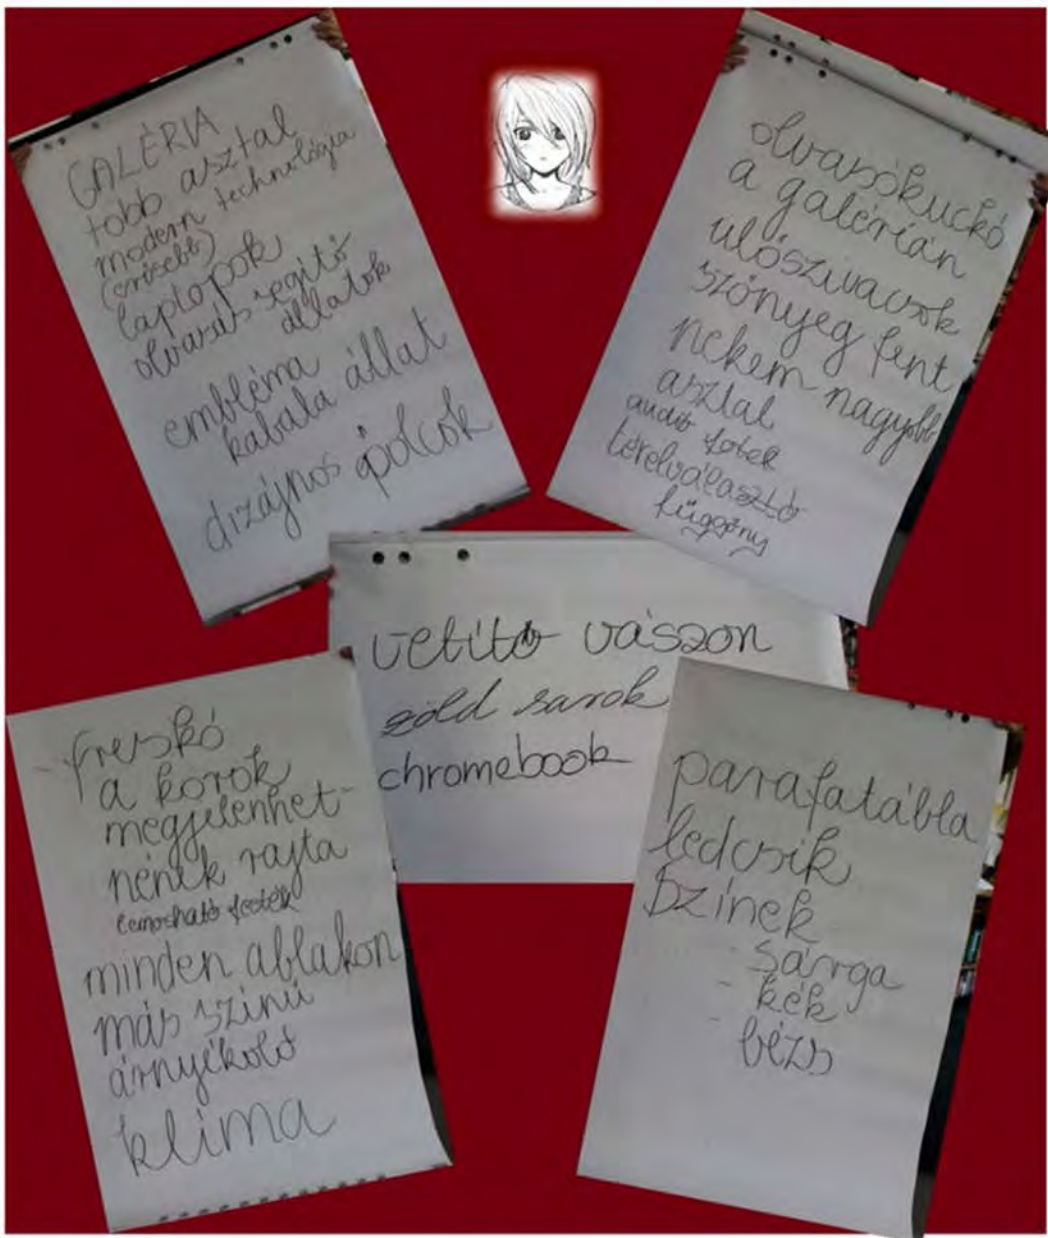 GALÉRIA
több asztal
modern technológia
(erősebb)
laptopok
olvasás segítő
állatok
embléma
kabala állat
dizájnos polcok
olvasókuckó
a galérián
ülőszivacsok
szőnyeg fent
nekem nagyobb
asztal
audio fotel
térelválasztó
függöny
vetítő vászon
zöld sarok
chromebook
- freskó
a korok
megjelenhet-
nének rajta
lemosható festék
minden ablakon
más színű
árnyékoló
klíma
parafatábla
ledcsík
Színek
- sárga
- kék
- bézs